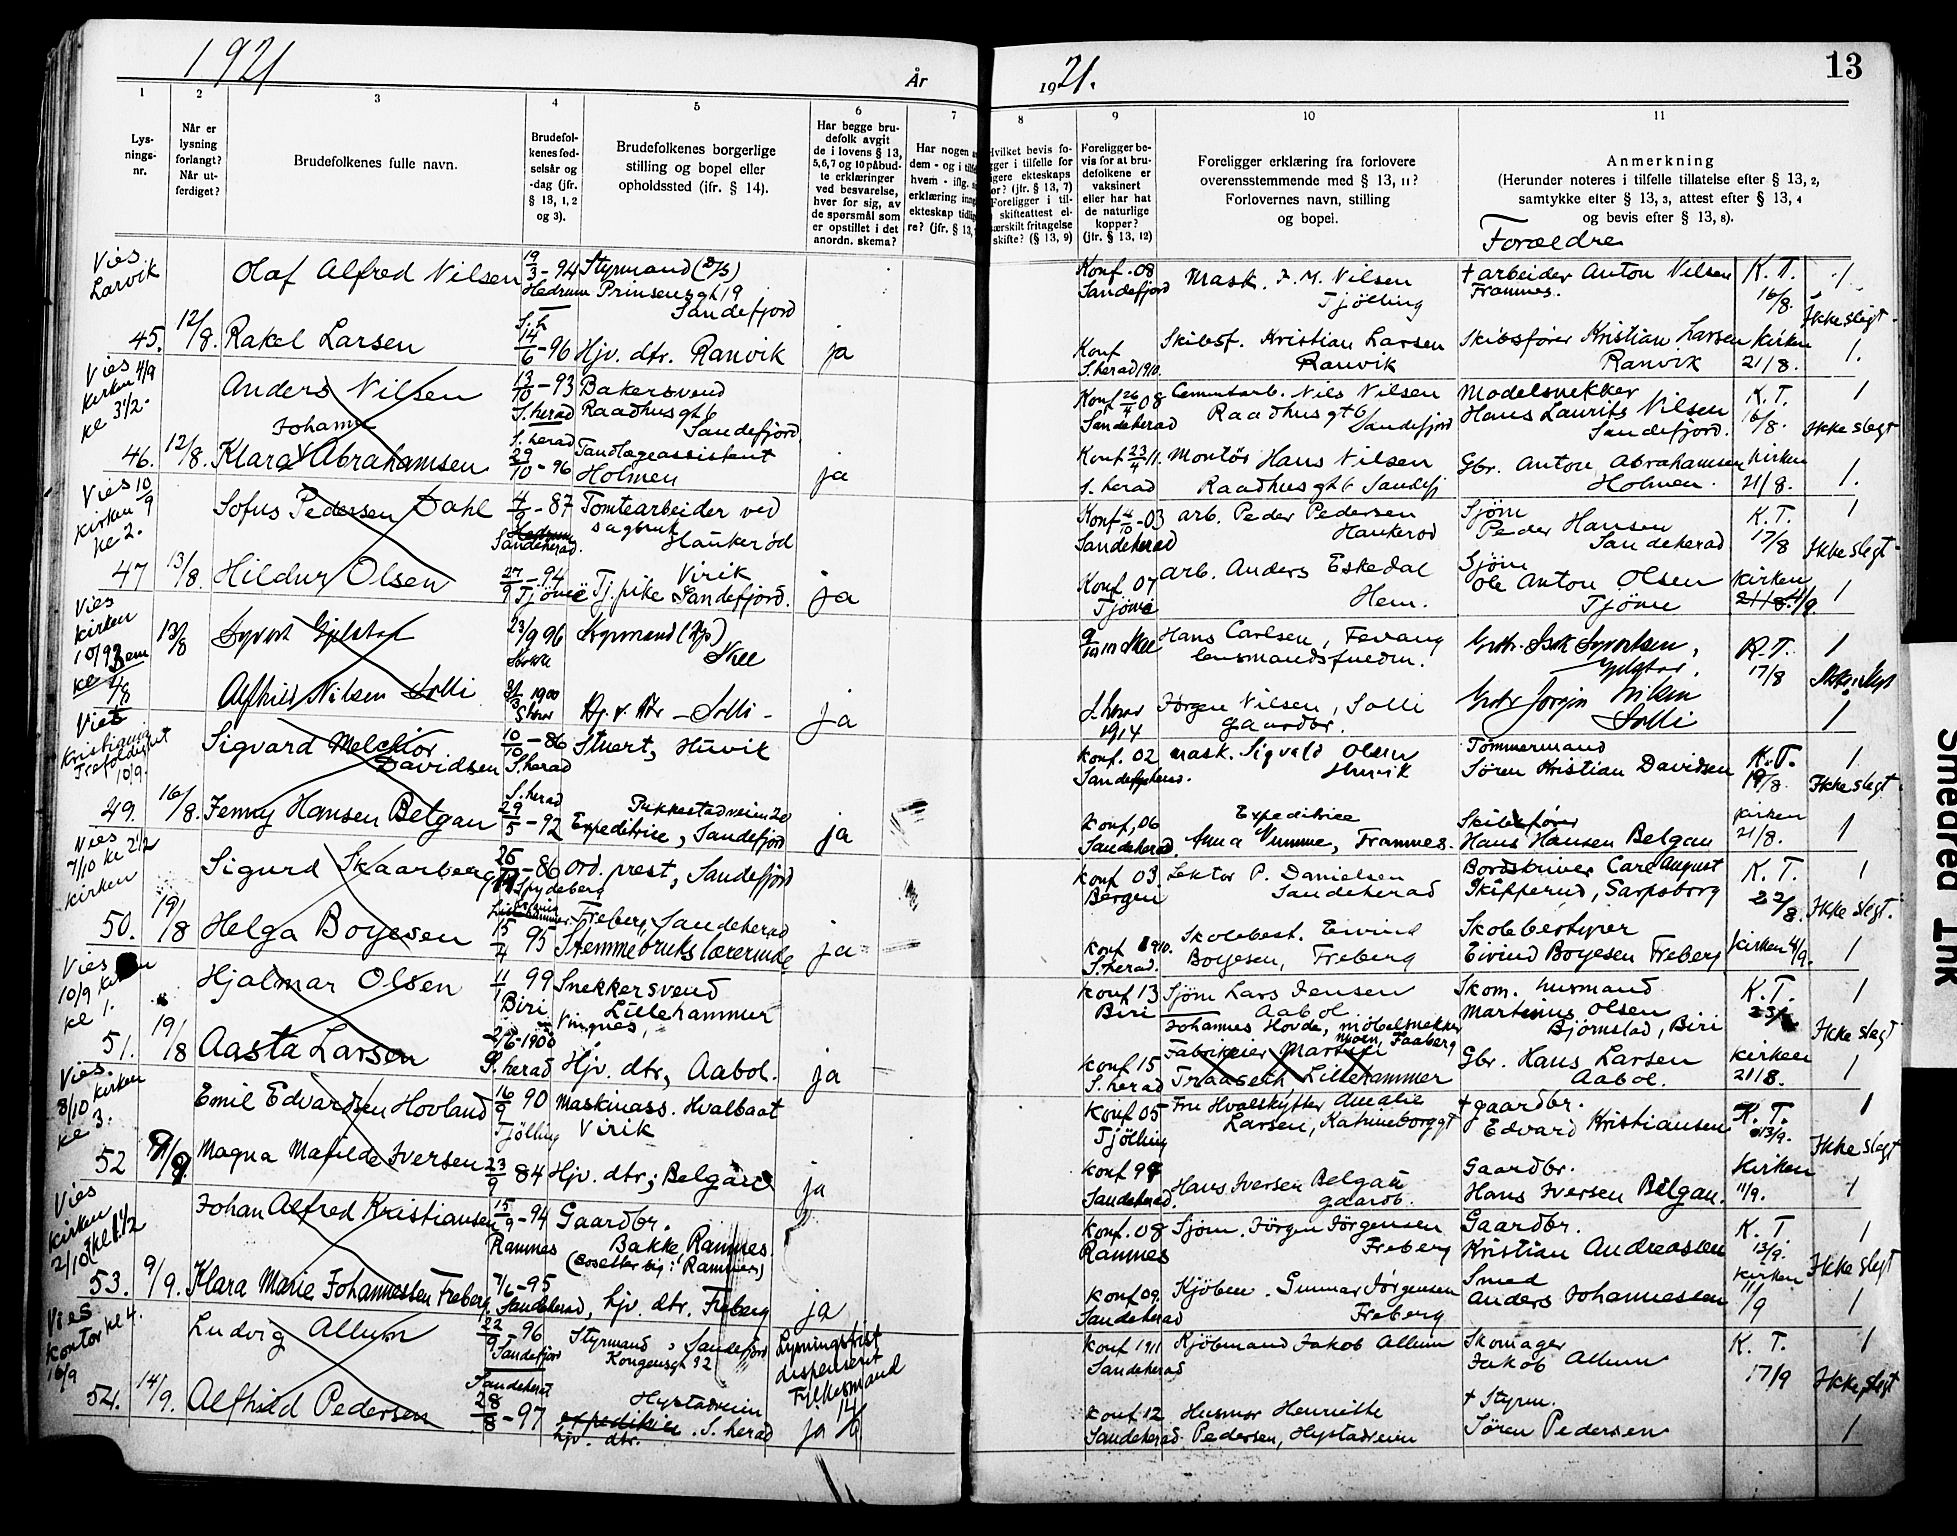 1921
År
1921.
13
1 2 3 4 5 6 7 8 9 10 11
Lys-
nings-
nr.
Når er
lysning
forlangt?
Når ut-
ferdiget?
Brudefolkenes fulle navn.
Brudefol-
kenes fød-
selsår og
-dag (jfr.
§ 13, 1, 2
og 3).
Brudefolkenes borgerlige
stilling og bopel eller
opholdssted (ifr. § 14).
Har begge bru-
defolk avgit
de i lovens § 13,
5, 6, 7 og 10 påbud-
te erklæringer
ved besvarelse,
hver for sig, av
de spørsmål som
er opstillet i det
anordn. skema?
Har nogen
dem - og i
hvem - iflg.
erklæring
ekteskap
re? (jfr. § 13,
Hvilket bevis fo-
i tilfelle for
ekteskaps
? (jfr. § 13, 7)
Foreligger i til-
skifteattest el-
særskilt fritagelse
skifte? (§ 13, 9)
Foreligger be-
vis for at bru-
defolkene er
vaksinert
eller har hat
de naturlige
kopper?
(jfr. § 13, 12)
Foreligger erklæring fra forlovere
overensstemmende med § 13, 11?
Forlovernes navn, stilling
og bopel.
Anmerkning
(Herunder noteres i tilfelle tillatelse efter § 13, 2,
samtykke efter § 13, 3, attest efter § 13, 4
og bevis efter § 13, 8).
Forældre
Vies
Larvik
Olaf Alfred Nilsen 19/3-94 Styrmand (D/S)
Hedrum Prinsensgt 19
Sandefjord
Konf. 08
Sandefjord
Mask. F. M. Nilsen
Tjølling
† arbeider Anton Nilsen
Framnes.
K. T.
16/8.
1
Ikke slegt
45. 12/8. Rakel Larsen 14/6-96 Hjv. dtr. Ranvik ja
Konf
S. herad 1910.
Skibsf. Kristian Larsen
Ranvik
Skibsfører Kristian Larsen
Ranvik
kirken
21/8.
1.
Vies
kirken 4/9
kl 3 1/2.
Anders Nilsen 13/10-93 Bakersvend
S. herad Raadhusgt 6
Sandefjord
Konf 26/4 08
Sandeherad
Cementarb. Nils Nilsen
Raadhusgt 6
Sandefjord
Modelsnekker
Hans Laurits Nilsen
Sandefjord.
K. T.
16/8.
1
Ikke slegt
Johanne
46. 12/8. Klara Abrahamsen
S. herad
29/10-96
Tandlægeassistent
Holmen
ja
Konf 23/4 11.
S. herad
Montør Hans Nilsen
Raadhusgt 6 Sandefj
Gbr. Anton Abrahamsen
Holmen.
kirken
21/8.
1.
Vies 10/9
kirken
kl 2.
Sofus Pedersen Dahl 4/9-87 Tomtearbeider ved
sagbruk
Haukerød
Hedrum
Sandeherad.
Konf 4/10-03
Sandeherad
arb. Peder Pedersen
Haukerød
Sjøm
Peder Hansen
Sandeherad
K. T.
17/8
1
Ikke slegt
47 13/8. Hildur Olsen 27/9-94
Tjøme
Virik
Tj. pike Sandefjord.
ja
Konf. 07
Tjøme
arb. Anders Eskedal
Hem.
Sjøm
Ole Anton Olsen
Tjøme
kirken
21/8. 4/9.
1
Vies
kirken
10/9
13/8
23/9 96 Styrmand
Hans Carlsen, Fevang
lensmandsfuldm.
K. T.
17/8
1
Alfhild Nilsen Solli
1900
Solli
ja
S. herad
1914
Jørgen Nilsen, Solli
gaardbr.
Solli
1
Vies
Kristiania
Trefoldighet
10/9.
Sigvard Melchior
Davidsen
10/10-86
S. herad
Stuert, Huvik
konf. 02
mask. Sigvald Olsen
Huvik
Tømmermand
Søren Kristian Davidsen
K. T.
19/8.
1.
Ikke slegt
49. 16/8. Jenny Hansen Belgau
S. herad
29/5-92
Pukkestadveien 20
Expeditrice, Sandefjord
ja
Konf. 06
Sandeherad
Expeditrice
Anna Vimme, Framnes.
Skibsfører
Hans Hansen Belgau
kirken
21/8.
1
Vies
7/10 kl 2 1/2
kirken
Sigurd Skaarberg -86 Ord. prest, Sandefjord
Spydeberg
konf 03.
Bergen
Lektor P. Danielsen
Sandeherad
Bordskriver Carl August
Skipperud, Sarpsborg
K. T.
22/8.
1
Ikke slegt.
50. 19/8 Helga Boyesen 15/4 95
Freberg, Sandeherad
Stemmebrukslærerinde
ja
konf 1910.
S. herad.
Skolebest. Eivind
Boyesen, Freberg
Skolebestyrer
Eivind Boyesen Freberg
kirken 4/9.
1
Vies
10/9 kirken
kl 1.
Hjalmar Olsen 11/1 99 Snekkersvend
Biri Lillehammer
Vingnes,
konf 13
Biri
Sjøm Lars Jensen
Aabol
Johannes Hovde, møbelsnekker
Faaberg
Skom. husmand
Martinus Olsen
Bjørnstad, Biri
K. T.
23/8
1
Ikke slegt
51. 19/8 Aasta Larsen 2/6-1900
S. herad Hjv. dtr, Aabol. ja
konf 15
S. herad
Fabrikeier Martin
Traaseth Lillehammer
Gbr. Hans Larsen
Aabol.
kirken
21/8.
1
Vies.
8/10 kirken
kl 3.
Emil Edvardsen Hovland 16/9 90 Maskinass. Hvalbaat
Tjølling Virik
konf 05
Tjølling
Fru Hvalskytter Amalie
Larsen, Katrineborggt
† gaardbr.
Edvard Kristiansen
K. T.
13/9.
1
Ikke slegt
52 9/9. Magna Matilde Iversen 23/9 84 Hjv. dtr; Belgau ja
Sandeherad.
Hans Iversen Belgau
gaardb.
Gaardbr.
Hans Iversen Belgau.
kirken
11/9.
1
Vies
kirken
2/10 kl 1 1/2
Johan Alfred Kristiansen 15/9-94 Gaardbr.
Ramnes Bakke, Ramnes.
(bosetter sig i Ramnes)
konf. 08
Ramnes
Sjøm. Jörgen Jörgensen
Freberg
Gaardbr.
Kristian Andreassen
K. T.
13/9.
1
Ikke slegt
53. 9/9. Klara Marie Johannessen Freberg 7/6-95
Sandeherad, hjv. dtr. Freberg ja
konf 09.
Sandeherad
Kjøbm. Gunnar Jørgensen
Freberg
Smed
Anders Johannessen
kirken
11/9
1
Vies
kontor kl 4.
16/9
Ludvig Allum 22/9 96
Sandefjord
Styrmand, Sandefjord
Kongensgt 32
Lysningsfrist
dispensert
Fylkesmand
12/9
konf 1911
Sandeherad
Kjøbmand Jakob Allum
Skomager
Jakob Allum
K. T.
17/9
1
Ikke slegt
54. 14/9. Alfhild Pedersen
Sandeherad
28/8-97
Hystadveien
expeditrice. S. herad
hjv. dtr.
ja
konf. 12
Sandeherad.
Husmor Henriette
Pedersen, Hystadveien
† Styrm.
Søren Pedersen
1
Smeared Ink